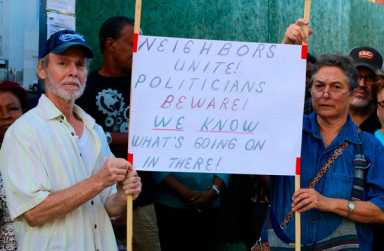 NEIGHBORS
UNITE!
POLITICIANS
BEWARE!
WE KNOW
WHAT'S GOING ON
IN THERE!